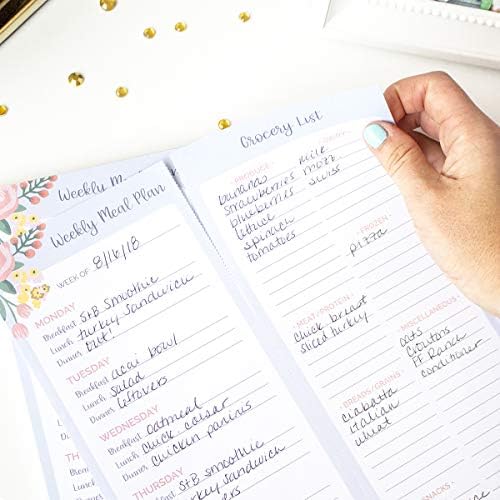 Weekly M
Weekly Meal Plan
WEEK OF 8/16/18
MONDAY
Breakfast S+B smoothie
Lunch turkey sandwich
Dinner out!
TUESDAY
Breakfast acai bowl
Lunch salad
Dinner leftovers
WEDNESDAY
Breakfast oatmeal
Lunch chick caesar
Dinner chicken paninis
THURSDAY
Breakfast S+B smoothie
Lunch turkey sandwich
Grocery List
PRODUCE
bananas
strawberries
blueberries
lettuce
spinach
tomatoes
milk
mozz.
swiss
FROZEN
pizza
MEAT/PROTEIN
chick breast
sliced turkey
MISCELLANEOUS
oats
croutons
FF Ranch
conditioner
BREADS/GRAINS
ciabatta
italian
wheat